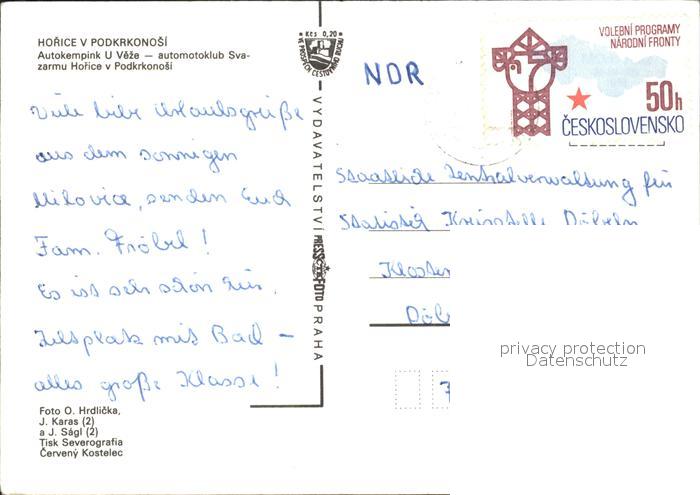 HOŘICE V PODKRKONOŠÍ
Autokempink U Věže — automotoklub Sva-
zarmu Hořice v Podkrkonoší
Viele liebe Urlaubsgrüße
aus dem sonnigen
Milovice, senden Euch
Fam. Fröbel!
Es ist sehr schön hier.
Zeltplatz mit Bad –
alles große Klasse!
Foto O. Hrdlička,
J. Karas (2)
a J. Ságl (2)
Tisk Severografia
Červený Kostelec
Kčs 0,20
VE PROSPĚCH CESTOVNÍHO RUCHU
VYDAVATELSTVÍ PRESSFOTO PRAHA
NDR
VOLEBNÍ PROGRAMY
NÁRODNÍ FRONTY
50h
ČESKOSLOVENSKO
Staatliche Zentralverwaltung für
Statistik Kreisstelle Döbeln
Kloster
Döbe
7
privacy protection
Datenschutz